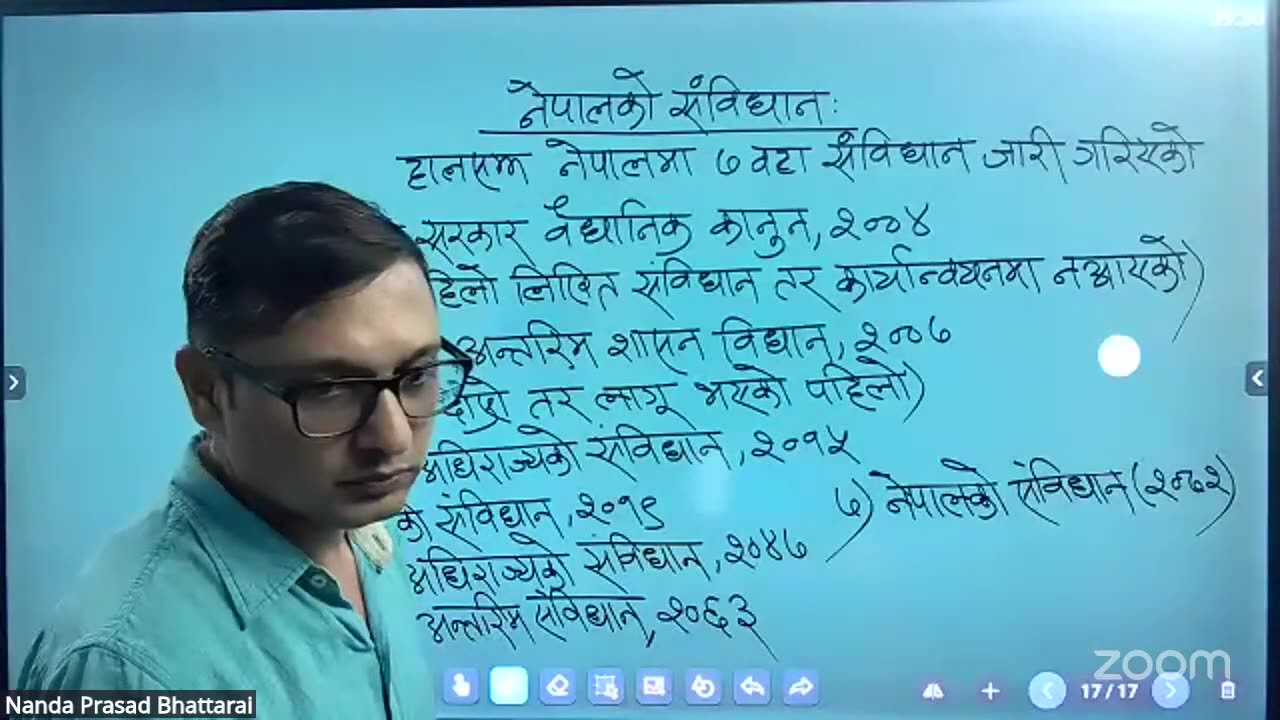 नेपालको संविधान:
हालसम्म नेपालमा ७ वटा संविधान जारी गरिएको
सरकार वैधानिक कानुन, २००४
हिलो लिखित संविधान तर कार्यान्वयनमा नआएको)
अन्तरिम शासन विधान, २००७
तर लागू भएको पहिलो)
अधिराज्यको संविधान, २०१५
को संविधान, २०१९
अधिराज्यको संविधान, २०४७
अन्तरिम संविधान, २०६३
७) नेपालको संविधान (२०७२)
zoom
17/17
Nanda Prasad Bhattarai